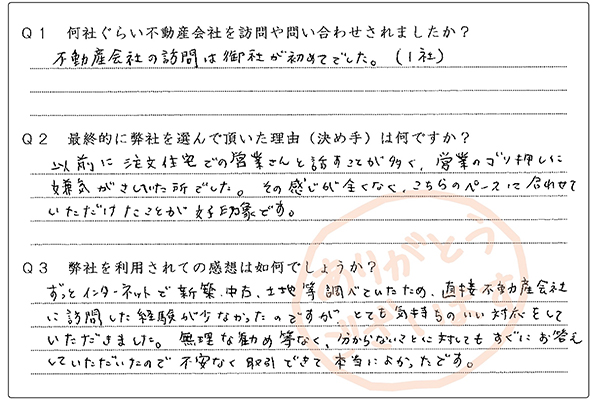 Q1 何社ぐらい不動産会社を訪問や問い合わせされましたか？
不動産会社の訪問は御社が初めてでした。(1社)
Q2 最終的に弊社を選んで頂いた理由（決め手）は何ですか？
以前に注文住宅での営業さんと話すことが多く、営業のゴリ押しに
嫌気がさしていた所でした。その感じが全くなく、こちらのペースに合わせて
いただけたことが好印象です。
Q3 弊社を利用されての感想は如何でしょうか？
ずっとインターネットで新築、中古、土地等調べていたため、直接不動産会社
に訪問した経験が少なかったのですが、とても気持ちのいい対応をして
いただきました。無理な勧め等なく、分からないことに対してもすぐにお答え
していただいたので不安なく取引できて本当によかったです。
ありがとう
ございます